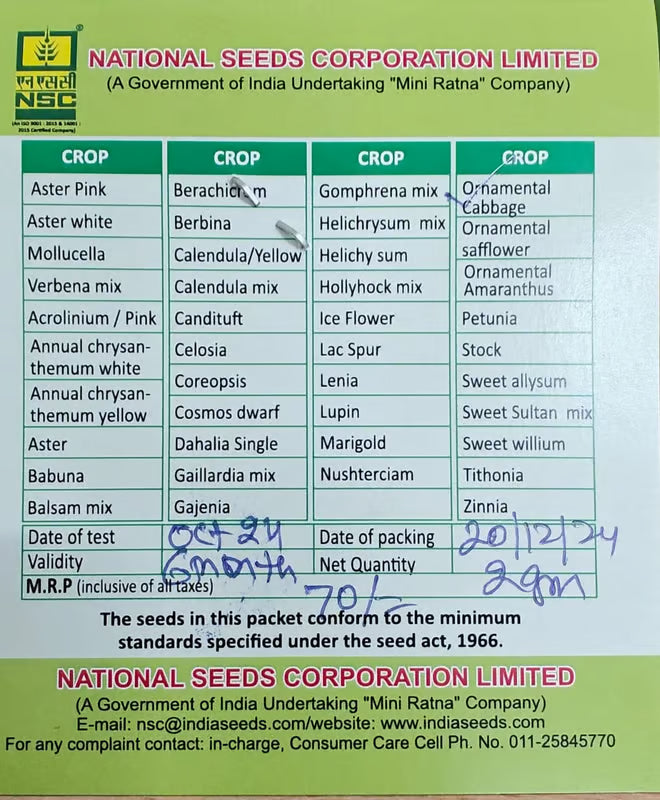 एन एस सी
NSC
(An ISO 9001 : 2015 & 14001 :
2015 Certified Company)
NATIONAL SEEDS CORPORATION LIMITED
(A Government of India Undertaking "Mini Ratna" Company)
CROP CROP CROP CROP
Aster Pink Berachicum Gomphrena mix Ornamental Cabbage
Aster white Berbina Helichrysum mix Ornamental safflower
Mollucella Calendula/Yellow Helichy sum Ornamental Amaranthus
Verbena mix Calendula mix Hollyhock mix Petunia
Acrolinium / Pink Candituft Ice Flower Stock
Annual chrysan-
themum white Celosia Lac Spur Sweet allysum
Annual chrysan-
themum yellow Coreopsis Lenia Sweet Sultan mix
Cosmos dwarf Lupin
Aster Dahalia Single Marigold Sweet willium
Babuna Gaillardia mix Nushterciam Tithonia
Balsam mix Gajenia Zinnia
Date of test Oct 24 Date of packing 20/12/24
Validity 6month Net Quantity 2gm
M.R.P (inclusive of all taxes) 70/-
The seeds in this packet conform to the minimum
standards specified under the seed act, 1966.
NATIONAL SEEDS CORPORATION LIMITED
(A Government of India Undertaking "Mini Ratna" Company)
E-mail: nsc@indiaseeds.com/website: www.indiaseeds.com
For any complaint contact: in-charge, Consumer Care Cell Ph. No. 011-25845770